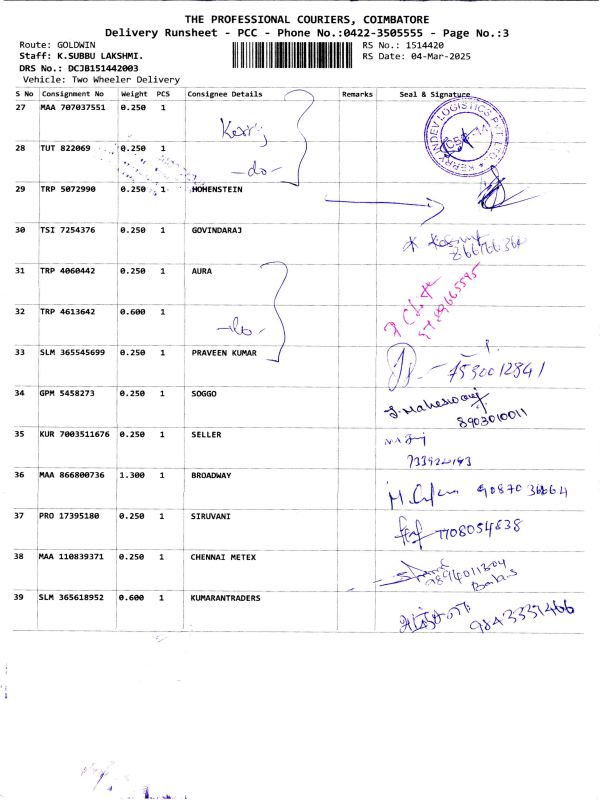 THE PROFESSIONAL COURIERS, COIMBATORE
Delivery Runsheet - PCC - Phone No.:0422-3505555 - Page No.:3
Route: GOLDWIN RS No.: 1514420
Staff: K.SUBBU LAKSHMI. RS Date: 04-Mar-2025
DRS No.: DCJB151442003
Vehicle: Two Wheeler Delivery
S No Consignment No Weight PCS Consignee Details Remarks Seal & Signature
27 MAA 707037551 0.250 1 Kerry
KERRY INDEV LOGISTICS PVT. LTD.
28 TUT 822069 0.250 1 -do-
29 TRP 5072990 0.250 1 HOHENSTEIN
30 TSI 7254376 0.250 1 GOVINDARAJ
31 TRP 4060442 0.250 1 AURA
32 TRP 4613642 0.600 1 -do-
33 SLM 365545699 0.250 1 PRAVEEN KUMAR
34 GPM 5458273 0.250 1 SOGGO
8903010011
35 KUR 7003511676 0.250 1 SELLER
36 MAA 866800736 1.300 1 BROADWAY
37 PRO 17395180 0.250 1 SIRUVANI 7708054838
38 MAA 110839371 0.250 1 CHENNAI METEX
39 SLM 365618952 0.600 1 KUMARANTRADERS 9843331466